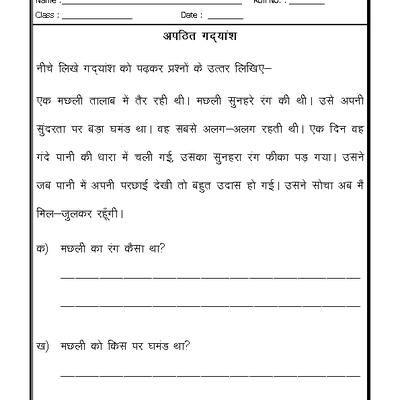 Name : Roll No. :
Class : Date :
अपठित गद्यांश
नीचे लिखे गद्यांश को पढ़कर प्रश्नों के उत्तर लिखिए–
एक मछली तालाब में तैर रही थी। मछली सुनहरे रंग की थी। उसे अपनी
सुंदरता पर बड़ा घमंड था। वह सबसे अलग–अलग रहती थी। एक दिन वह
गंदे पानी की धारा में चली गई, उसका सुनहरा रंग फीका पड़ गया। उसने
जब पानी में अपनी परछाई देखी तो बहुत उदास हो गई। उसने सोचा अब मैं
मिल–जुलकर रहूँगी।
क) मछली का रंग कैसा था?
ख) मछली को किस पर घमंड था?